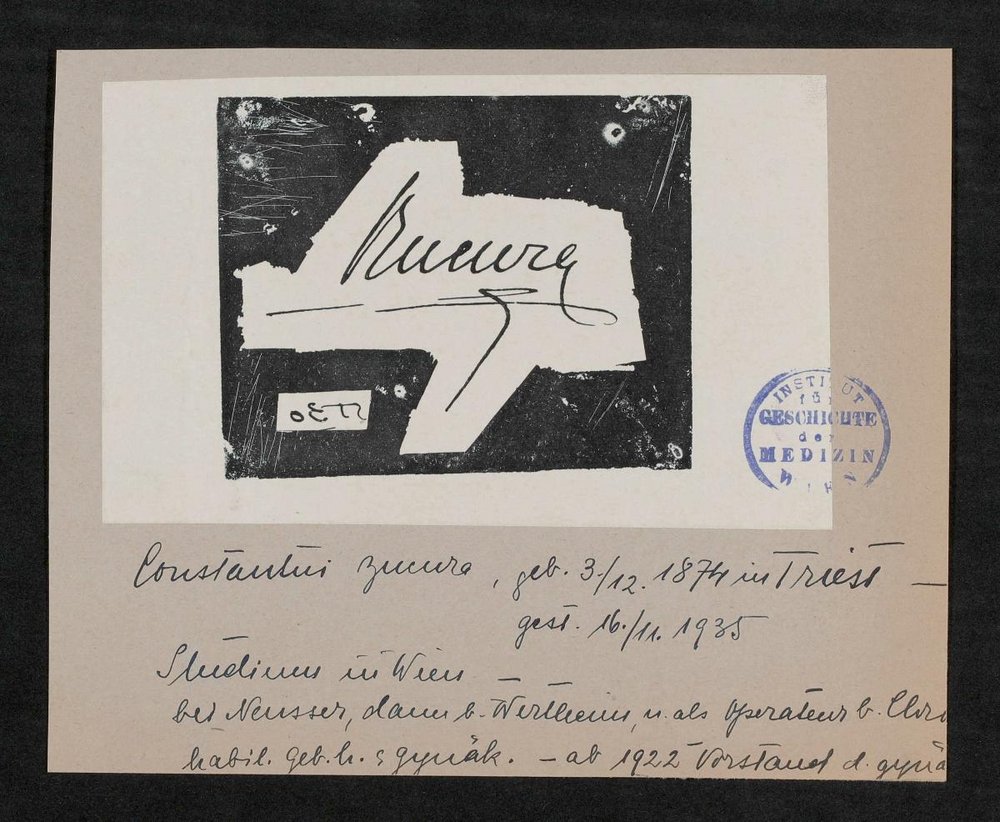 Bucura
INSTITUT
für
GESCHICHTE
der
MEDIZIN
WIEN
Constantin Bucura, geb. 3/12. 1874 in Triest —
gest. 16./11. 1935
Studium in Wien —
bei Neusser, dann b. Wertheim, u. als Operateur b. Chro
habil. Geb.h. & gynäk. – ab 1922 Vorstand d. gynä